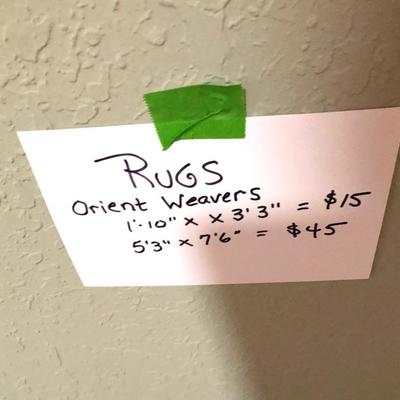 RUGS
Orient Weavers
1'·10" x x 3'3" = $15
5'3" x 7'6" = $45